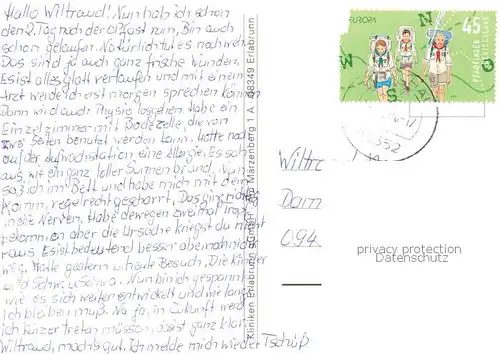 Hallo Wiltraud! Nun hab ich schon
den 2. Tag nach der OP fast rum. Bin auch
schon gelaufen. Natürlich tut es noch weh.
Das sind ja auch ganz frische Wunden.
Es ist alles glatt verlaufen und mit einem
Arzt werde ich erst morgen sprechen können
Dann wird auch Physio losgehen. Habe ein
Einzelzimmer mit Badezelle, die von
zwei Seiten benutzt werden kann. Hatte noch
auf der Aufwachstation eine Allergie. Es sah
aus, wie ein ganz toller Sonnenbrand. Nun
saß ich im Bett und habe mich mit dem
Kamm regelrecht gescharrt. Das ging richtig
in die Nerven. Habe deswegen zweimal Tropf
bekommen aber die Ursache kriegst du nicht
raus. Es ist bedeutend besser aber nicht
weg. Hatte gestern und heute Besuch, Die Kinder
und Schw. u. Schwa. Nun bin ich gespannt
wie es sich weiter entwickelt und wie lange
ich bleiben muß. Na ja, in Zukunft werde
ich kürzer treten müssen, das ist ganz klar
Wiltraud, mach's gut. Ich melde mich wieder Tschüß
Kliniken Erlabrunn gGmbH Märzenberg 1 A 08349 Erlabrunn
EUROPA
45
DEUTSCHLAND
PFADFINDER
N
W
S
O
08352
Wiltr
Dam
094
privacy protection
Datenschutz